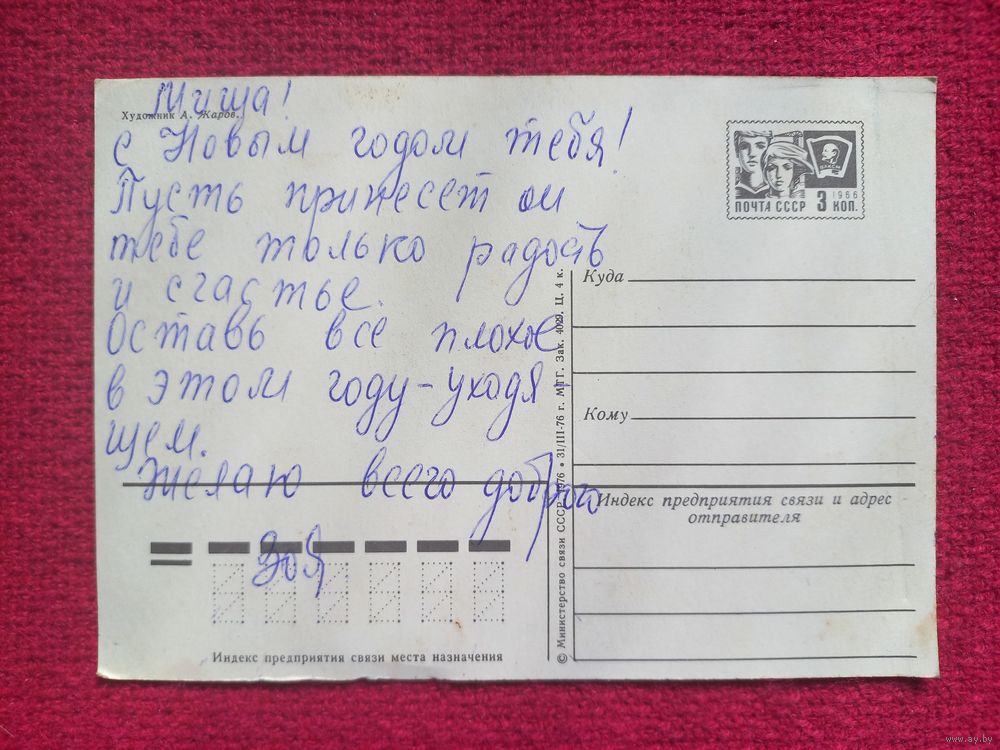 Миша!
Художник А. Жаров.
с Новым годом тебя!
Пусть принесет он
тебе только радость
и счастье.
Оставь все плохое
в этом году-уходя
щем.
Желаю всего доброго
Зоя
ВЛКСМ
1966
ПОЧТА СССР 3 КОП.
Куда
Кому
Индекс предприятия связи и адрес
отправителя
© Министерство связи СССР. 1976 • 31/III-76 г. МТГ. Зак. 4029. Ц. 4 к.
Индекс предприятия связи места назначения
www.ay.by